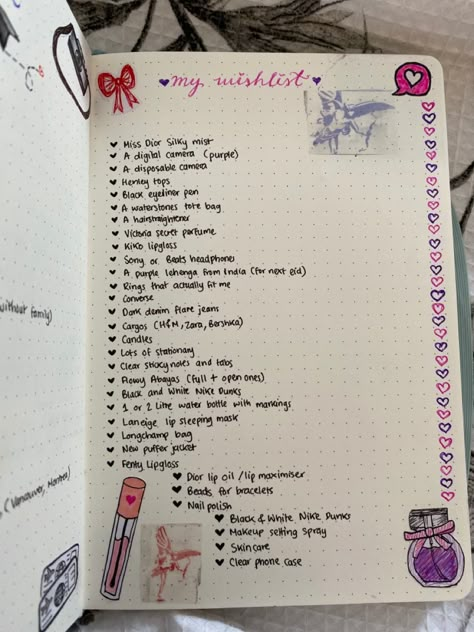 my wishlist
Miss Dior Silky mist
A digital camera (purple)
A disposable camera
Henley tops
Black eyeliner pen
A waterstones tote bag
A hairstraightener
Victoria secret perfume
KIKO lipgloss
Sony or Beats headphones
A purple lehenga from India (for next eid)
Rings that actually fit me
Converse
Dark denim flare jeans
Cargos (H&M, Zara, Bershka)
Candles
Lots of stationary
Clear sticky notes and tabs
Flowy Abayas (full + open ones)
Black and White Nike Dunks
1 or 2 Litre water bottle with markings
Laneige lip sleeping mask
Longchamp bag
New puffer jacket
Fenty Lipgloss
Dior lip oil / lip maximiser
Beads for bracelets
Nail polish
Black & White Nike Dunks
Makeup setting spray
Skincare
Clear phone case
without family)
(Vancouver,